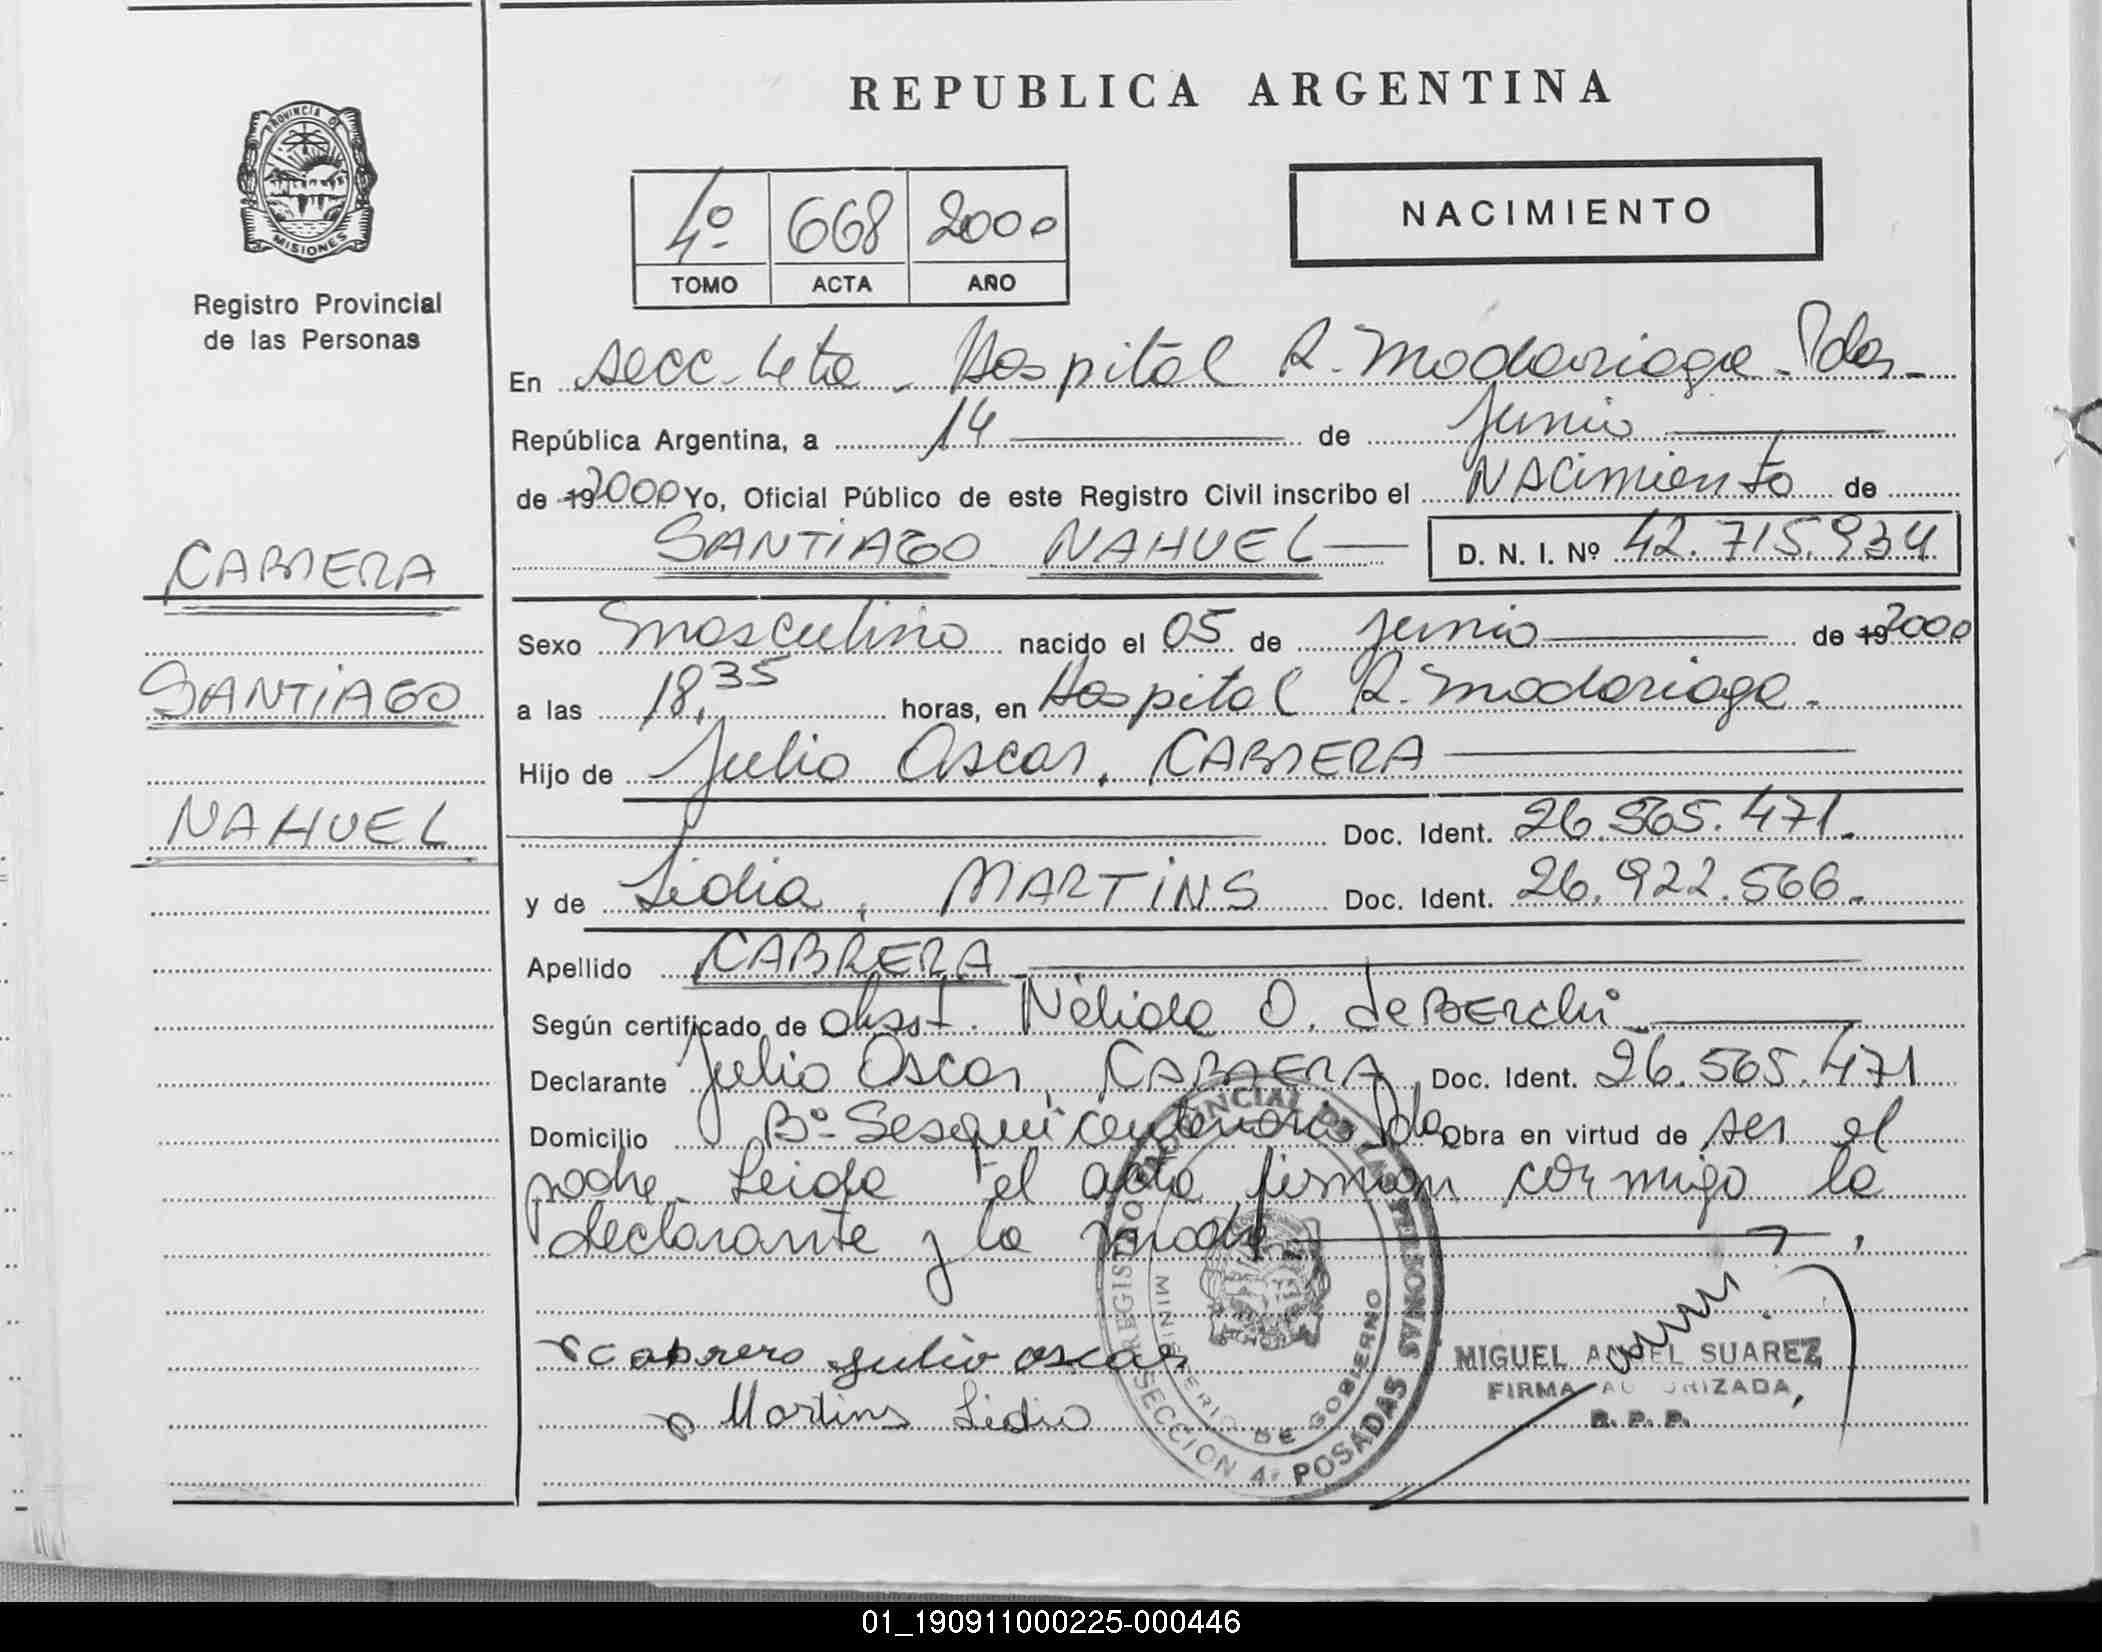 REPUBLICA ARGENTINA
PROVINCIA D MISIONES
Registro Provincial
de las Personas
4º 668 2000
TOMO ACTA AÑO
NACIMIENTO
En secc. 4ta. Hospital R. Madariaga - Pdas -
República Argentina, a 14 de Junio
de 192000 Yo, Oficial Público de este Registro Civil inscribo el NACimiento de
SANTIAGO NAHUEL D. N. I. Nº 42.715.934
CABRERA
SANTIAGO
NAHUEL
Sexo masculino nacido el 05 de junio de 192000
a las 18,35 horas, en Hospital R. Madariaga.
Hijo de Julio Oscar, CABRERA
Doc. Ident. 26.565.471.
y de Lidia, MARTINS Doc. Ident. 26.922.566.
Apellido CABRERA
Según certificado de obst. Nélida O. de BERchi
Declarante Julio Oscar, CABRERA, Doc. Ident. 26.565.471
Domicilio Bº Sesquicentenario Pdas Obra en virtud de ser el
padre. Leída el acta firman conmigo la
declarante y la madre
Cabrera julio oscar
Martins Lidia
REGISTRO PROVINCIAL DE LAS PERSONAS
MINISTERIO DE GOBIERNO
SECCION 4ª POSADAS
MIGUEL ANGEL SUAREZ
FIRMA AUTORIZADA
R. P. P.
01_190911000225-000446